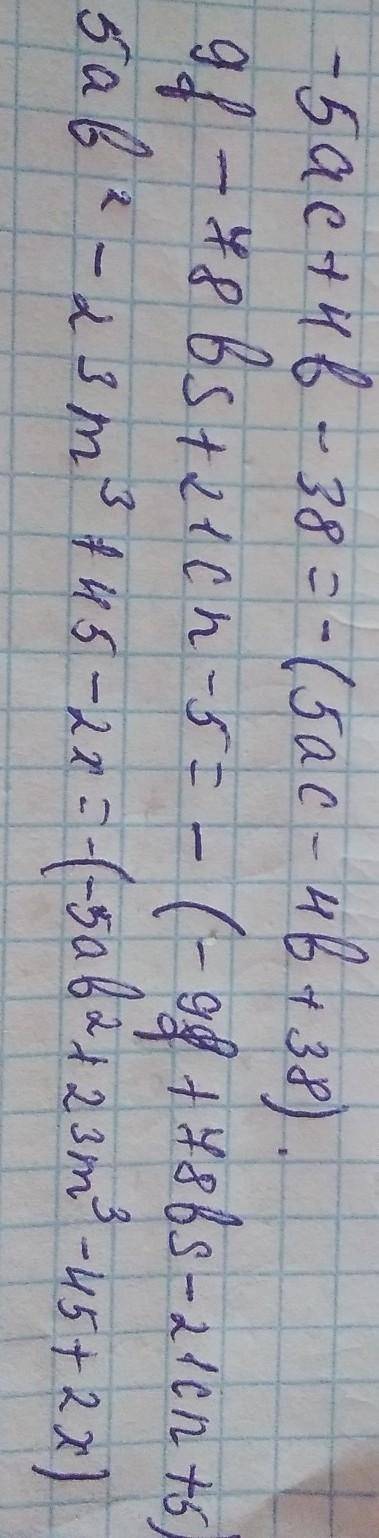 -5ac+4b-38=-(5ac-4b+38).
9f-78bs+21cn-5=-(-9f+78bs-21cn+5)
5ab²-23m³+45-2x=-(-5ab²+23m³-45+2x)